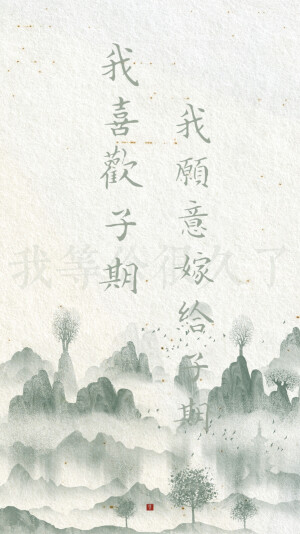 我喜歡子期
我願意嫁給子期
我等你很久了